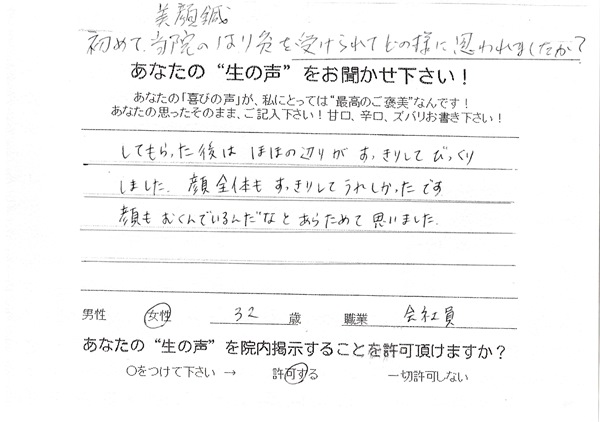 美顔鍼
初めて、当院のはり灸を受けられてどの様に思われましたか?
あなたの“生の声”をお聞かせ下さい！
あなたの「喜びの声」が、私にとっては“最高のご褒美”なんです！
あなたの思ったそのまま、ご記入下さい！甘口、辛口、ズバリお書き下さい！
してもらった後は ほほの辺りが すっきりして びっくり
しました。顔全体も すっきりして うれしかったです
顔も むくんでいるんだなと あらためて 思いました。
男性 女性 32 歳 職業 会社員
あなたの“生の声”を院内掲示することを許可頂けますか？
○をつけて下さい → 許可する 一切許可しない